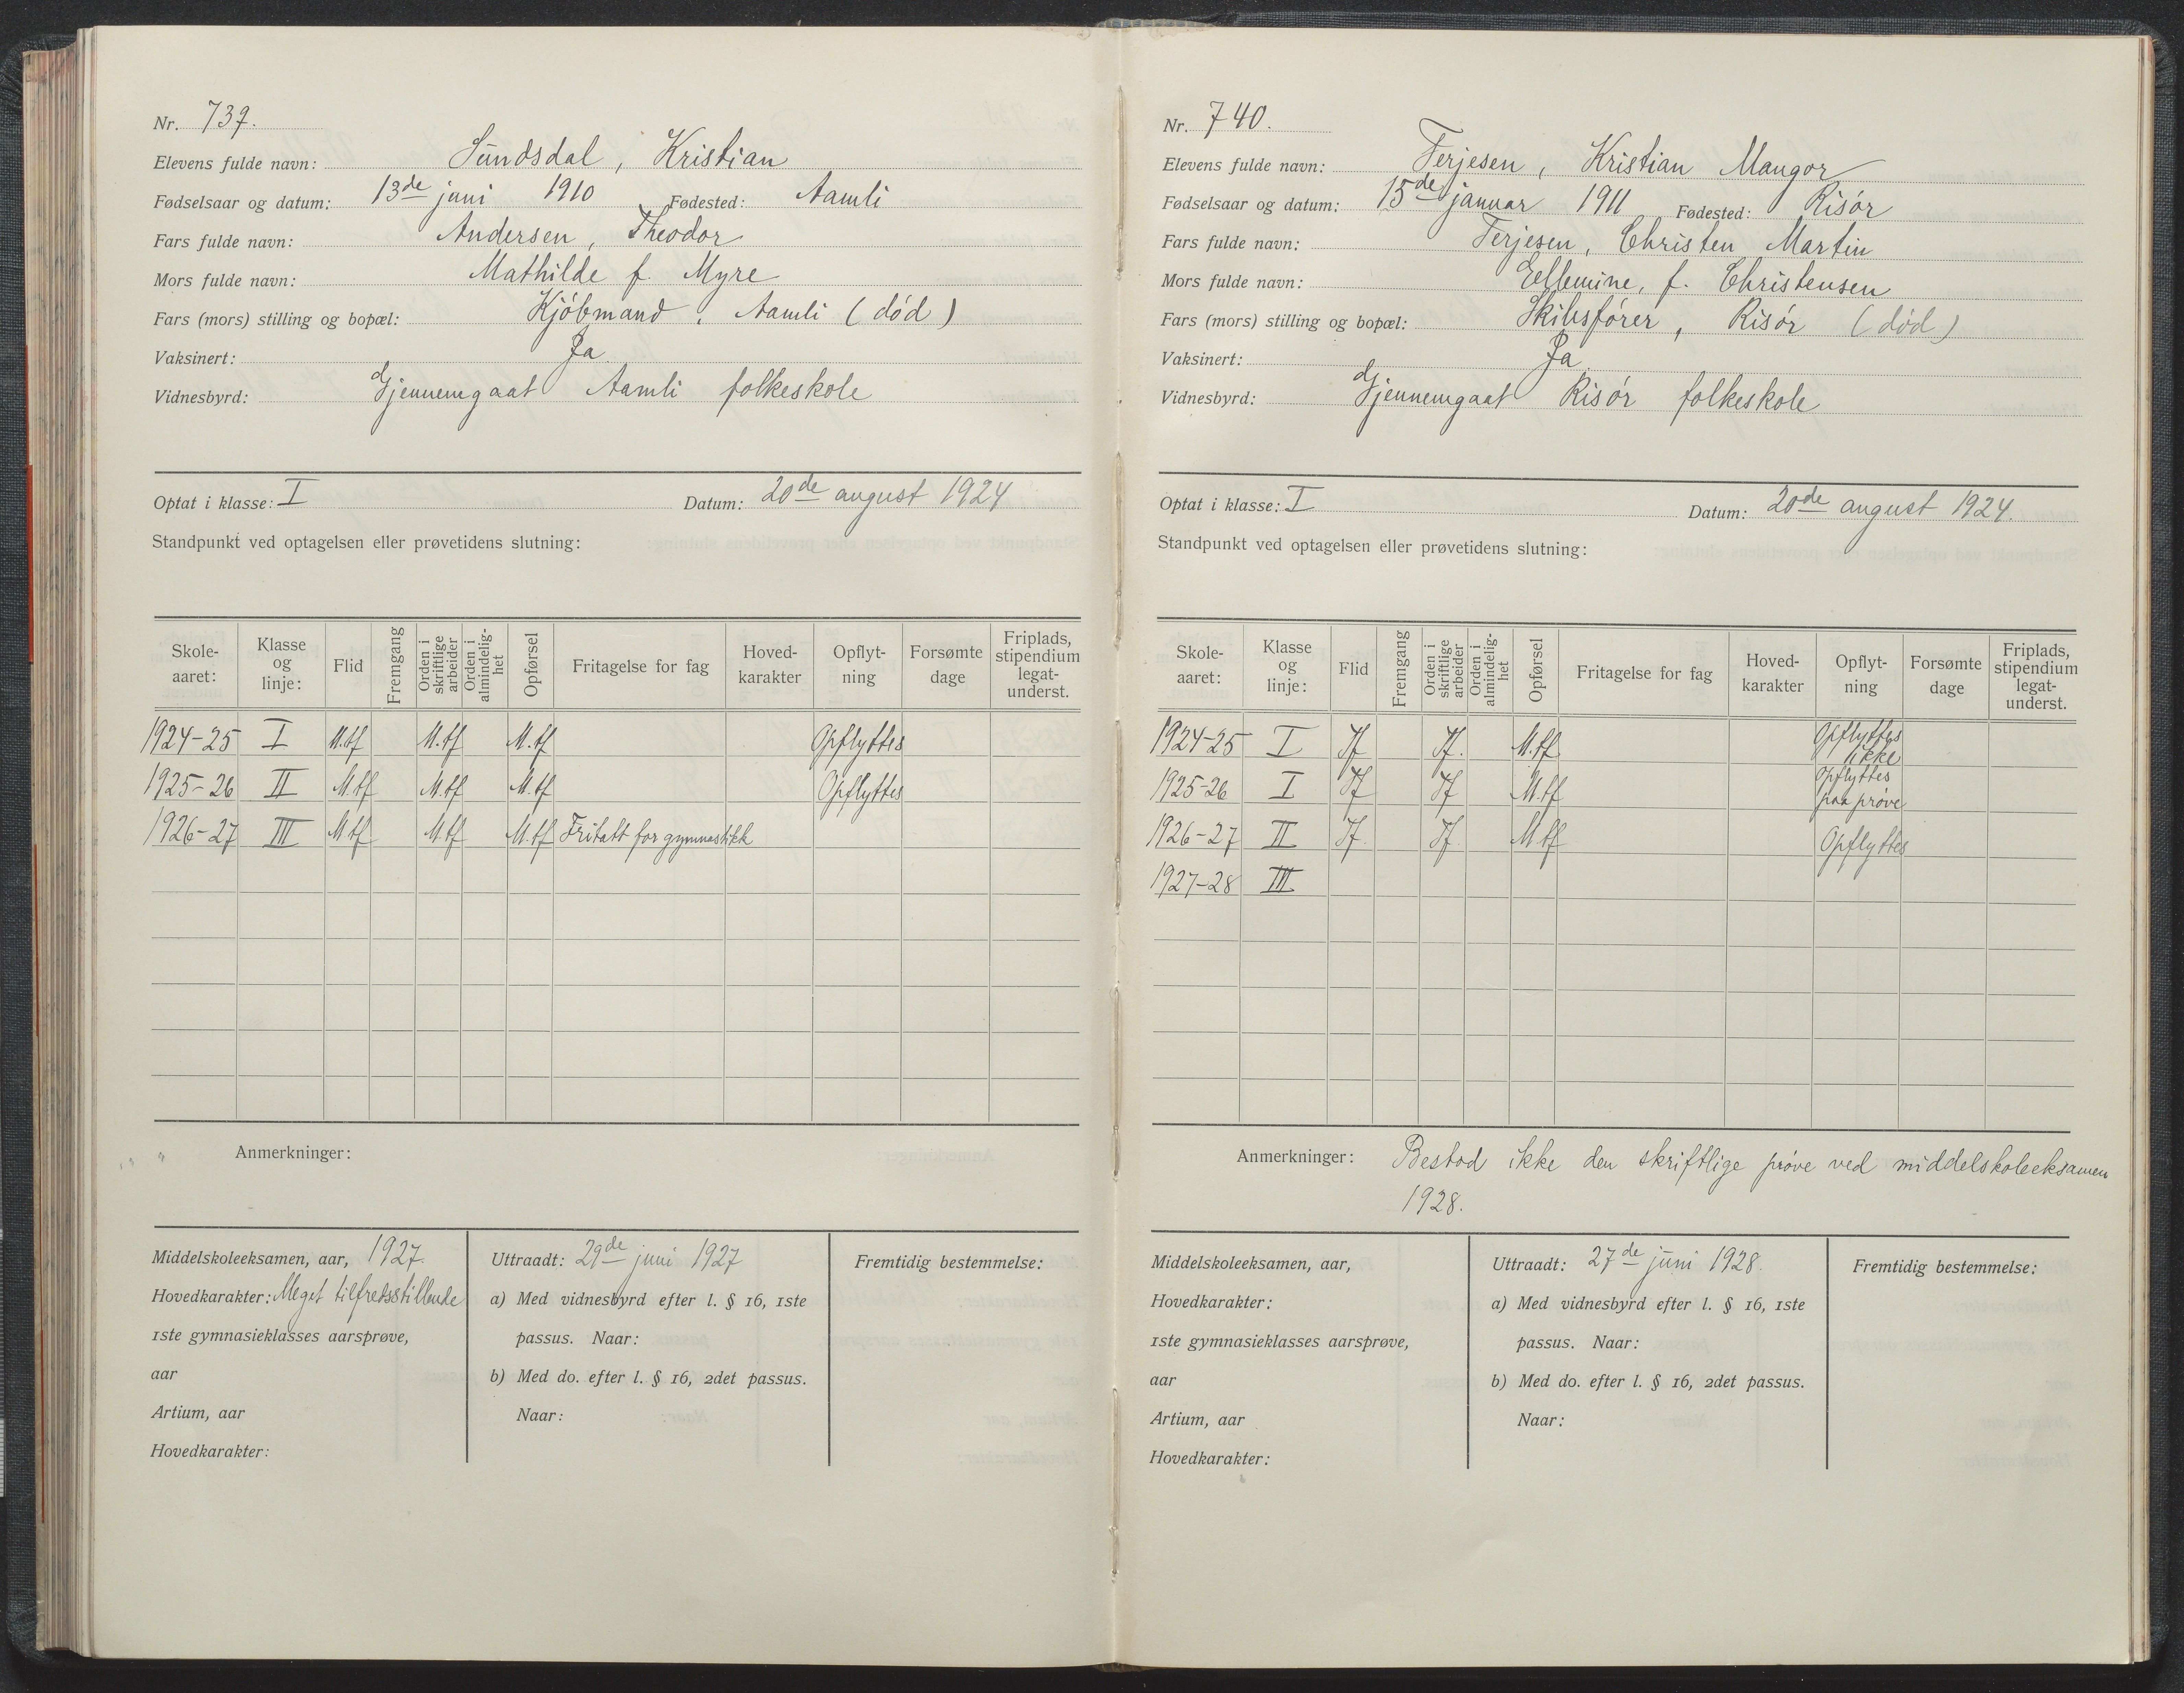 Nr. 739.
Elevens fulde navn: Sundsdal, Kristian
Fødselsaar og datum: 13de juni 1910 Fødested: Aamli
Fars fulde navn: Andersen, Theodor
Mors fulde navn: Mathilde f. Myre
Fars (mors) stilling og bopæl: Kjöbmand, Aamli (död)
Vaksinert: Ja
Vidnesbyrd: Gjennemgaat Aamli folkeskole
Optat i klasse: I Datum: 20de august 1924
Standpunkt ved optagelsen eller prøvetidens slutning:
Skole-aaret: Klasse og linje: Flid Fremgang Orden i skriftlige arbeider Orden i almindelig-het Opførsel Fritagelse for fag Hoved-karakter Opflyt-ning Forsømte dage Friplads, stipendium legat-underst.
1924-25 I M.tf M.tf M.tf Opflyttes
1925-26 II M.tf M.tf M.tf Opflyttes
1926-27 III M.tf M.tf M.tf Fritatt for gymnastikk
Anmerkninger:
Middelskoleeksamen, aar, 1927
Hovedkarakter: Meget tilfredsstillende
1ste gymnasieklasses aarsprøve,
aar
Artium, aar
Hovedkarakter:
Uttraadt: 29de juni 1927
a) Med vidnesbyrd efter l. § 16, 1ste
passus. Naar:
b) Med do. efter l. § 16, 2det passus.
Naar:
Fremtidig bestemmelse:
Nr. 740.
Elevens fulde navn: Terjesen, Kristian Mangor
Fødselsaar og datum: 15de januar 1911 Fødested: Risör
Fars fulde navn: Terjesen, Christen Martin
Mors fulde navn: Ellemine, f. Christensen
Fars (mors) stilling og bopæl: Skibsförer, Risör (död)
Vaksinert: Ja
Vidnesbyrd: Gjennemgaat Risör folkeskole
Optat i klasse: I Datum: 20de august 1924.
Standpunkt ved optagelsen eller prøvetidens slutning:
Skole-aaret: Klasse og linje: Flid Fremgang Orden i skriftlige arbeider Orden i almindelig-het Opførsel Fritagelse for fag Hoved-karakter Opflyt-ning Forsømte dage Friplads, stipendium legat-underst.
1924-25 I Tf Tf. M.tf. Opflyttes ikke
1925-26 I Tf Tf M.tf Opflyttes paa prøve
1926-27 II Tf. Tf. M.tf Opflyttes
1927-28 III
Anmerkninger: Bestod ikke den skriftlige pröve ved middelskoleeksamen
1928.
Middelskoleeksamen, aar,
Hovedkarakter:
1ste gymnasieklasses aarsprøve,
aar
Artium, aar
Hovedkarakter:
Uttraadt: 27de juni 1928.
a) Med vidnesbyrd efter l. § 16, 1ste
passus. Naar:
b) Med do. efter l. § 16, 2det passus.
Naar:
Fremtidig bestemmelse: